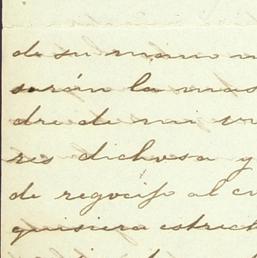 de su mano
serán la mas
dre de mi
res dichosa y
de regocijo al
quisiera estrech